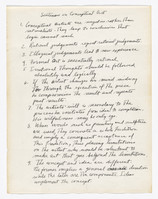 Sentences on Conceptual Art
1. Conceptual Artists are mystics rather than
rationalists. They leap to conclusions that
logic cannot reach.
2. Rational judgements repeat rational judgements.
3. Illogical judgements lead to new experience.
4. Formal Art is essentially rational.
5. Irrational Thoughts should be followed
absolutely and logically.
6. If the artist changes his mind midway
through the execution of the piece
he compromises the result and repeats
past results.
7. The artist's will is secondary to the
process he initiates from idea to completion.
His wilfulness may only be ego.
8. When words such as painting and sculpture
are used, they connote a whole tradition
and imply a consequent acceptance of
this tradition, thus placing limitations
on the artist who would be reluctant to
make art that goes beyond the limitations.
9. The concept and idea are different.
The former implies a general direction
while the latter are the components. Ideas
implement the concept.